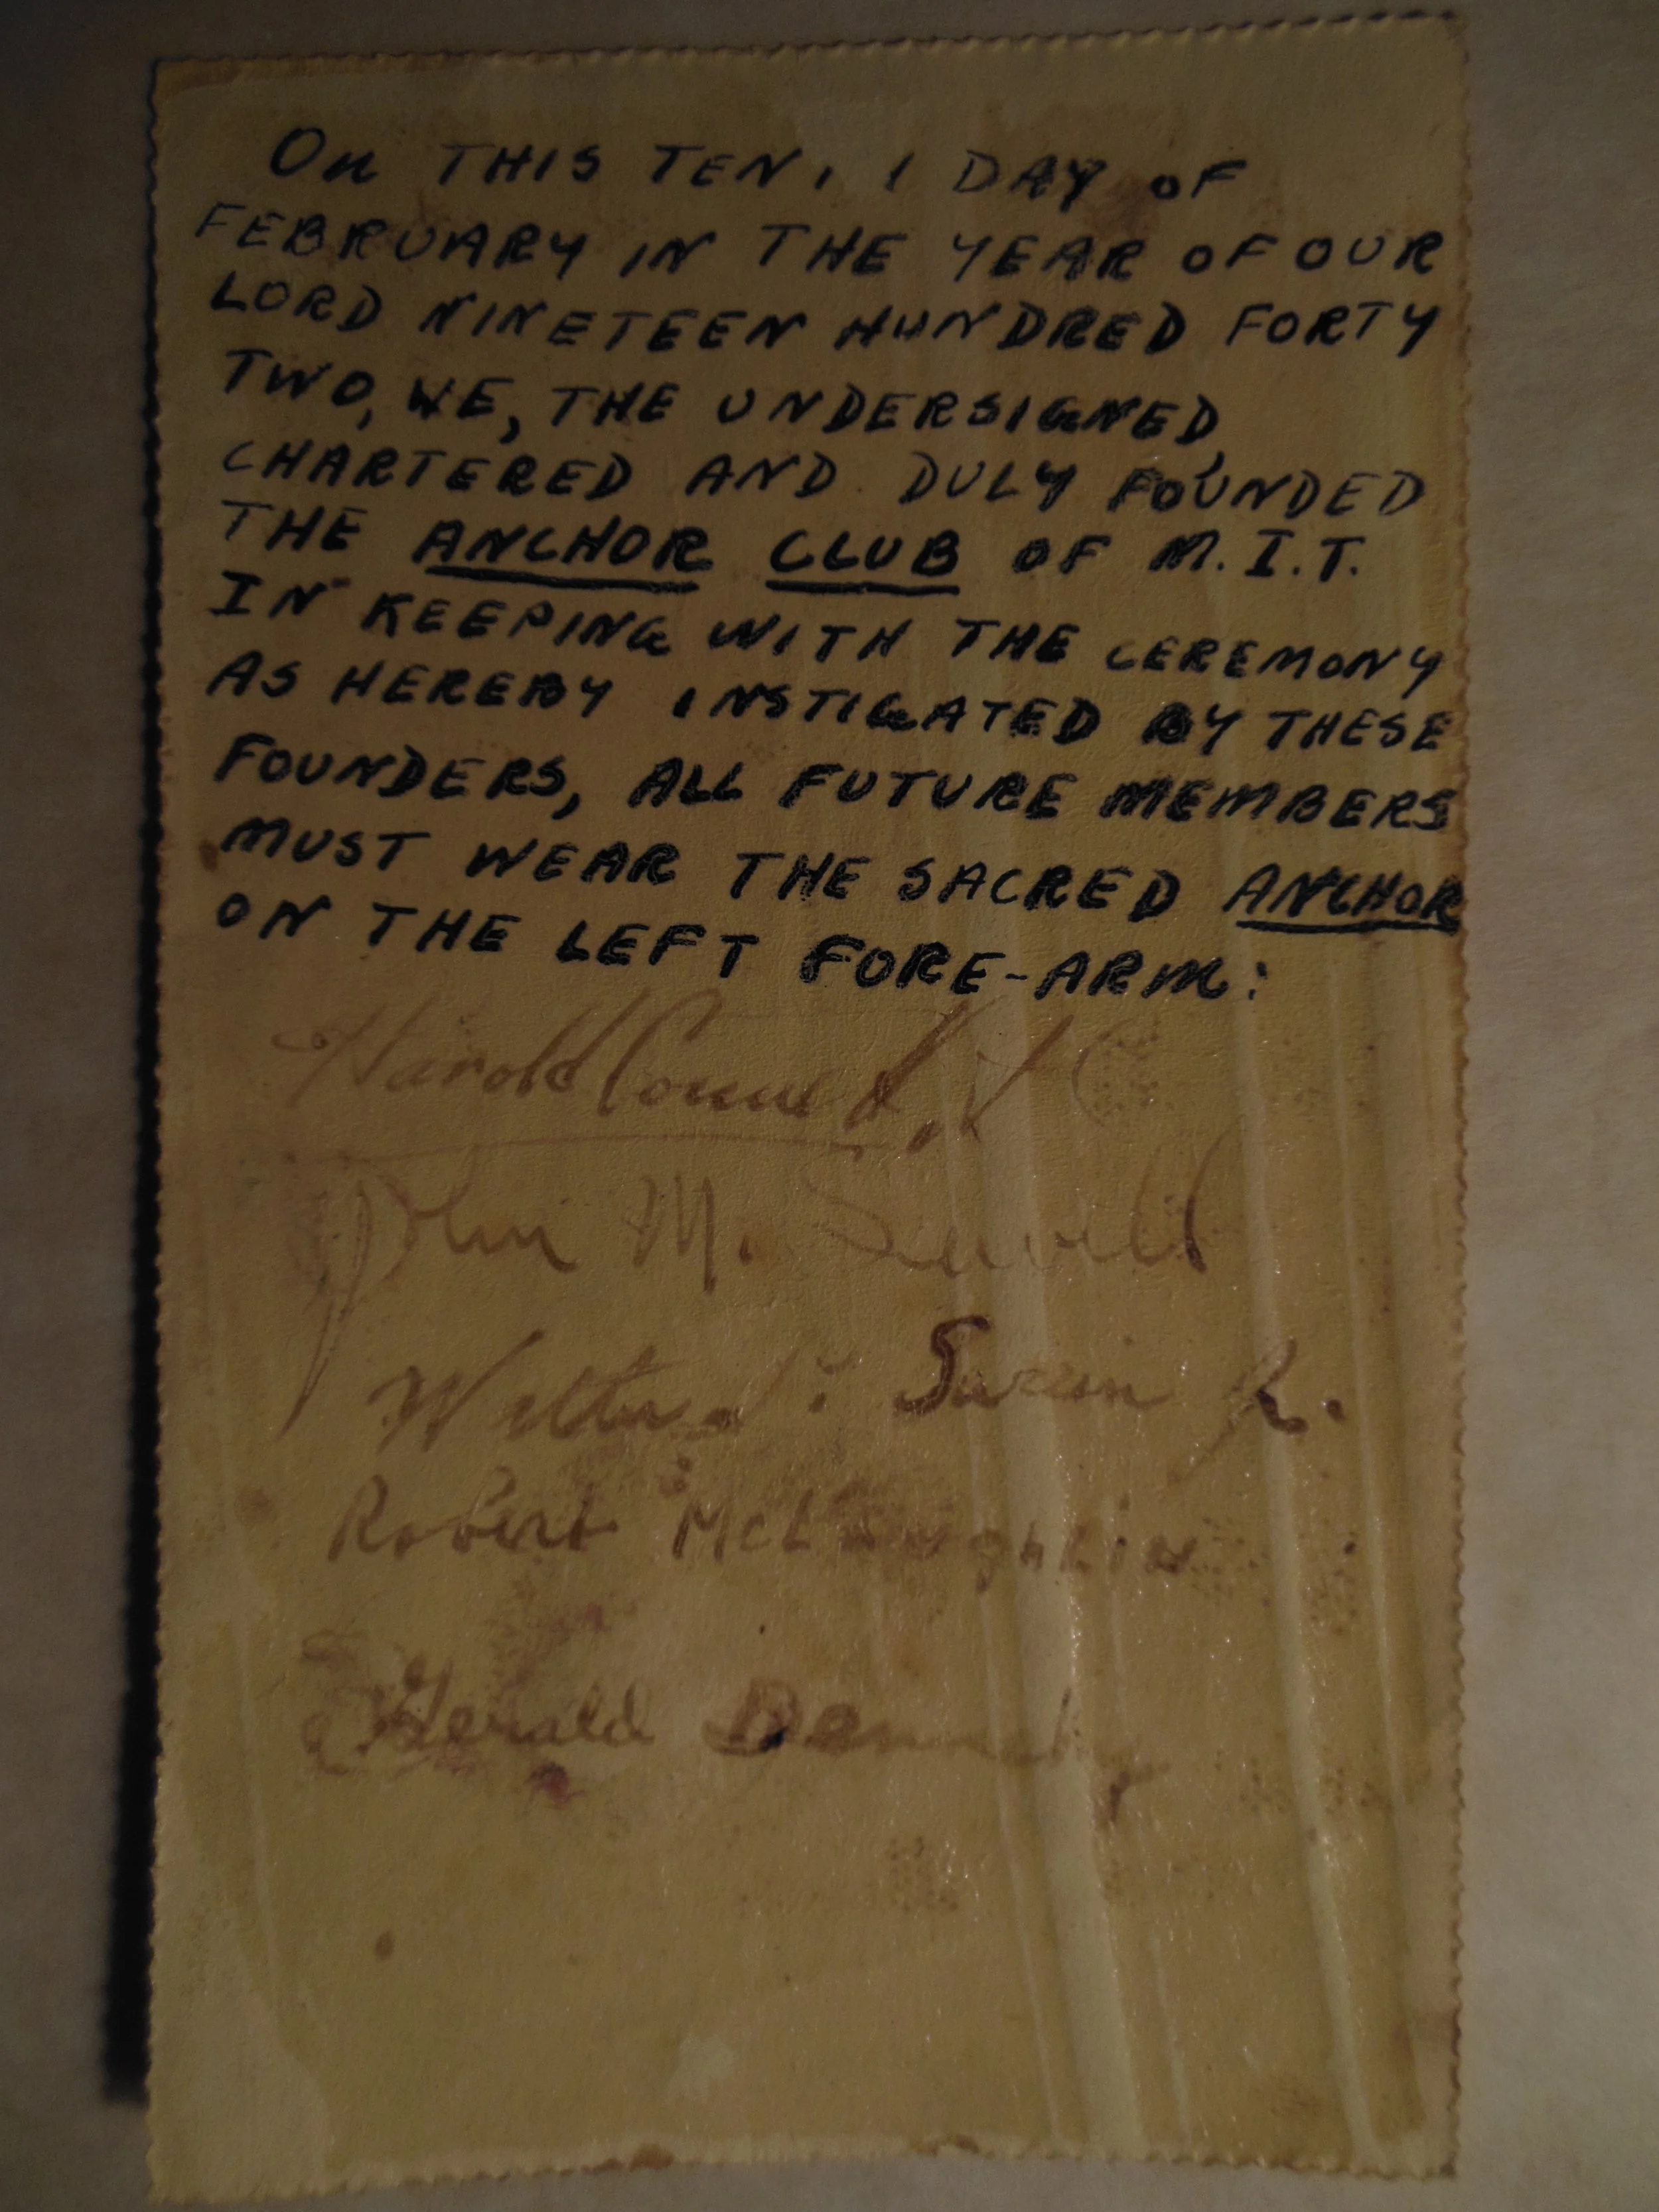 On THIS TEN, 1 DAY OF
FEBRUARY IN THE YEAR OF OUR
LORD NINETEEN HUNDRED FORTY
TWO, WE, THE UNDERSIGNED,
CHARTERED AND DULY FOUNDED
THE ANCHOR CLUB OF M.I.T.
IN KEEPING WITH THE CEREMONY
AS HEREBY INSTIGATED BY THESE
FOUNDERS, ALL FUTURE MEMBERS
MUST WEAR THE SACRED ANCHOR
ON THE LEFT FORE-ARM:
Harold
John M.
Walter Jr.
Robert McLaughlin
Gerald